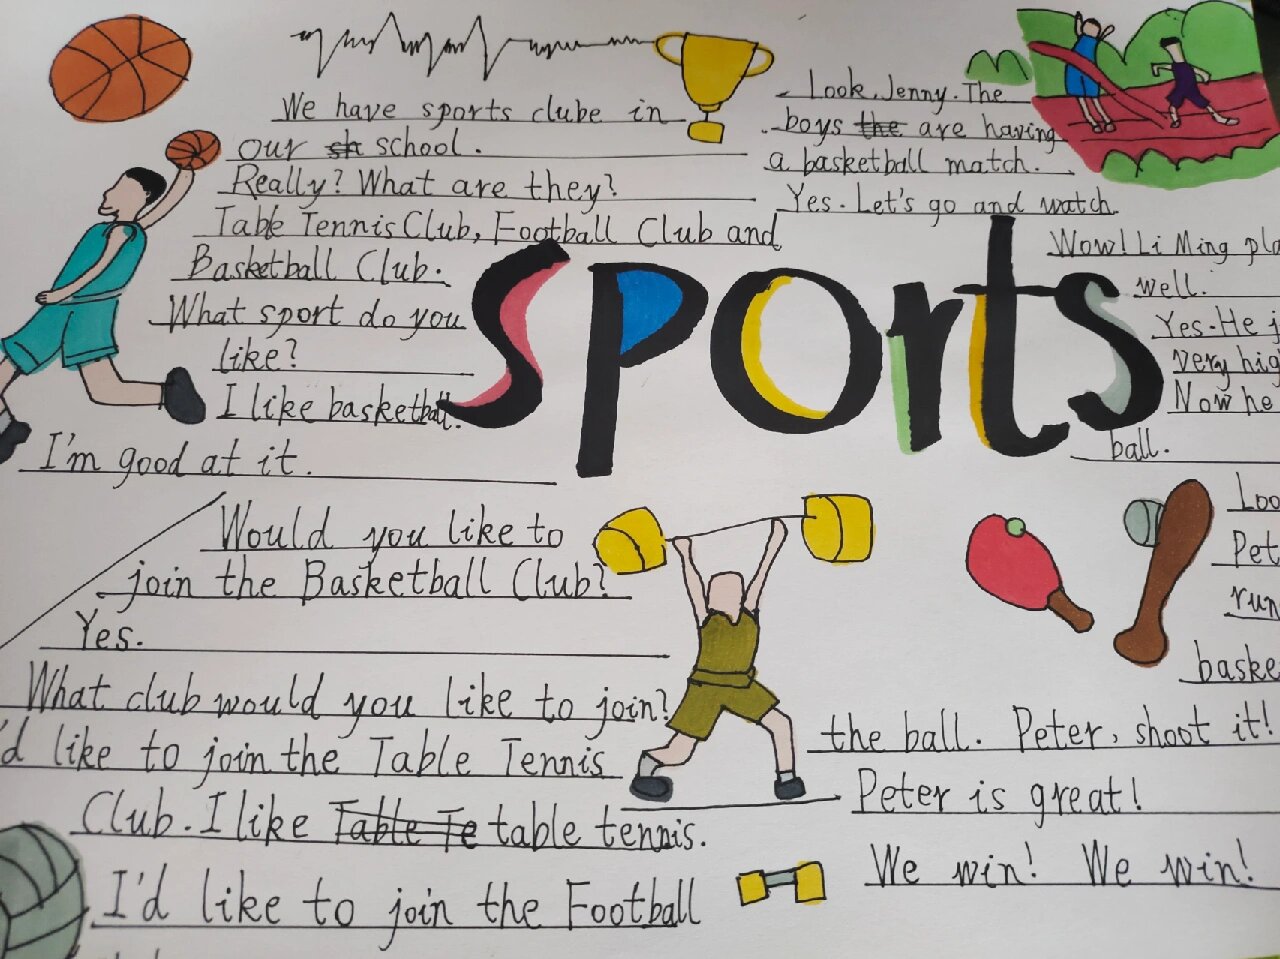 We have sports clube in
our sh school.
Really? What are they?
Table Tennis Club, Football Club and
Basketball Club.
What sport do you
like?
I like basketball.
I'm good at it.
Would you like to
join the Basketball Club?
Yes.
What club would you like to join?
'd like to join the Table Tennis
Club. I like Table Te table tennis.
I'd like to join the Football
Sports
Look, Jenny. The
boys the are having
a basketball match.
Yes. Let's go and watch
Wow! Li Ming pla
well.
Yes. He
very hig
Now he
ball.
Loo
Pet
run
baske
the ball. Peter, shoot it!
Peter is great!
We win! We win!